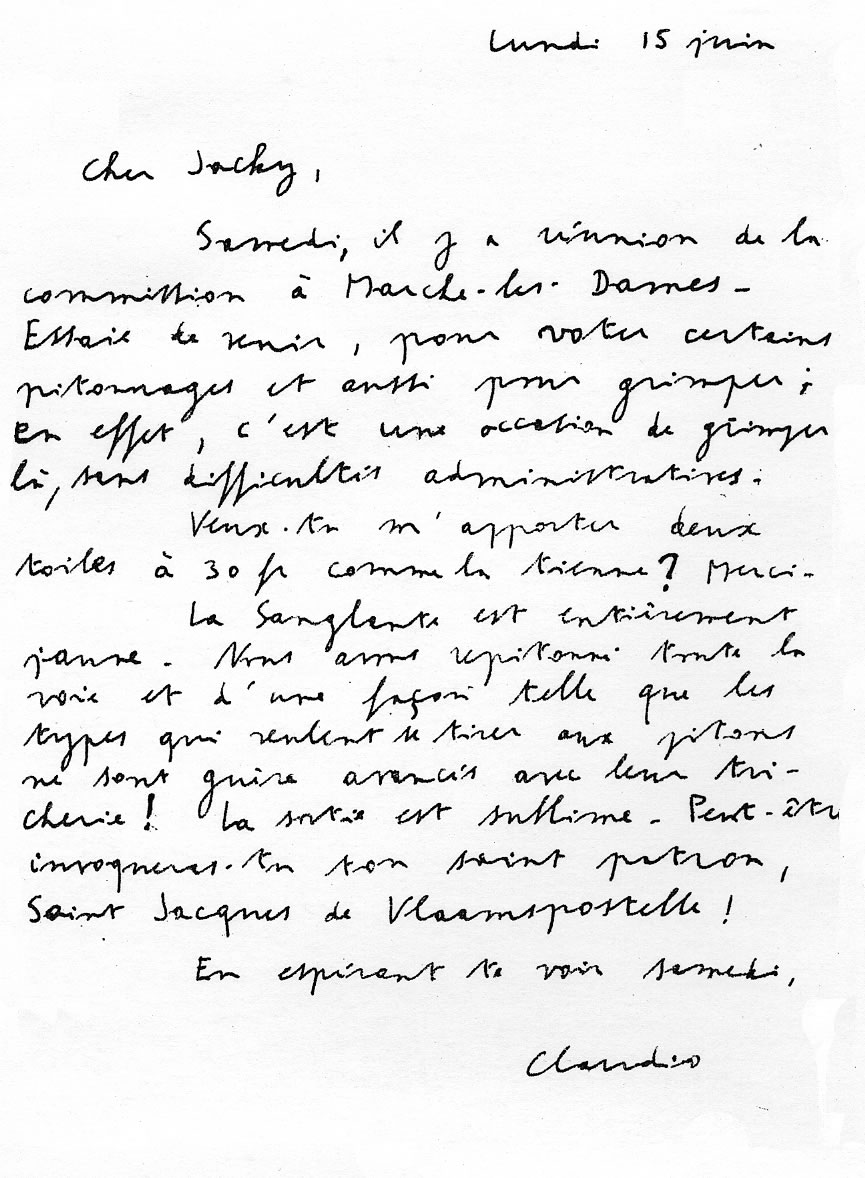 Lundi 15 juin
Cher Jacky,
Samedi, il y a réunion de la
commission à Marche-les-Dames -
Essaie de venir, pour voter certains
pitonnages et aussi pour grimper ;
en effet, c'est une occasion de grimper
là, sans difficultés administratives.
Veux-tu m'apporter deux
toiles à 30 fr comme la tienne ? Merci -
La Sanglante est entièrement
jaune - Nous avons repitonné toute la
voie et d'une façon telle que les
types qui veulent se tirer aux pitons
ne sont guère avancés avec leur tri-
cherie ! La sortie est sublime - Peut-être
invoqueras-tu ton saint patron,
Saint Jacques de Vlaamspostelle !
En espérant te voir samedi,
Claudio